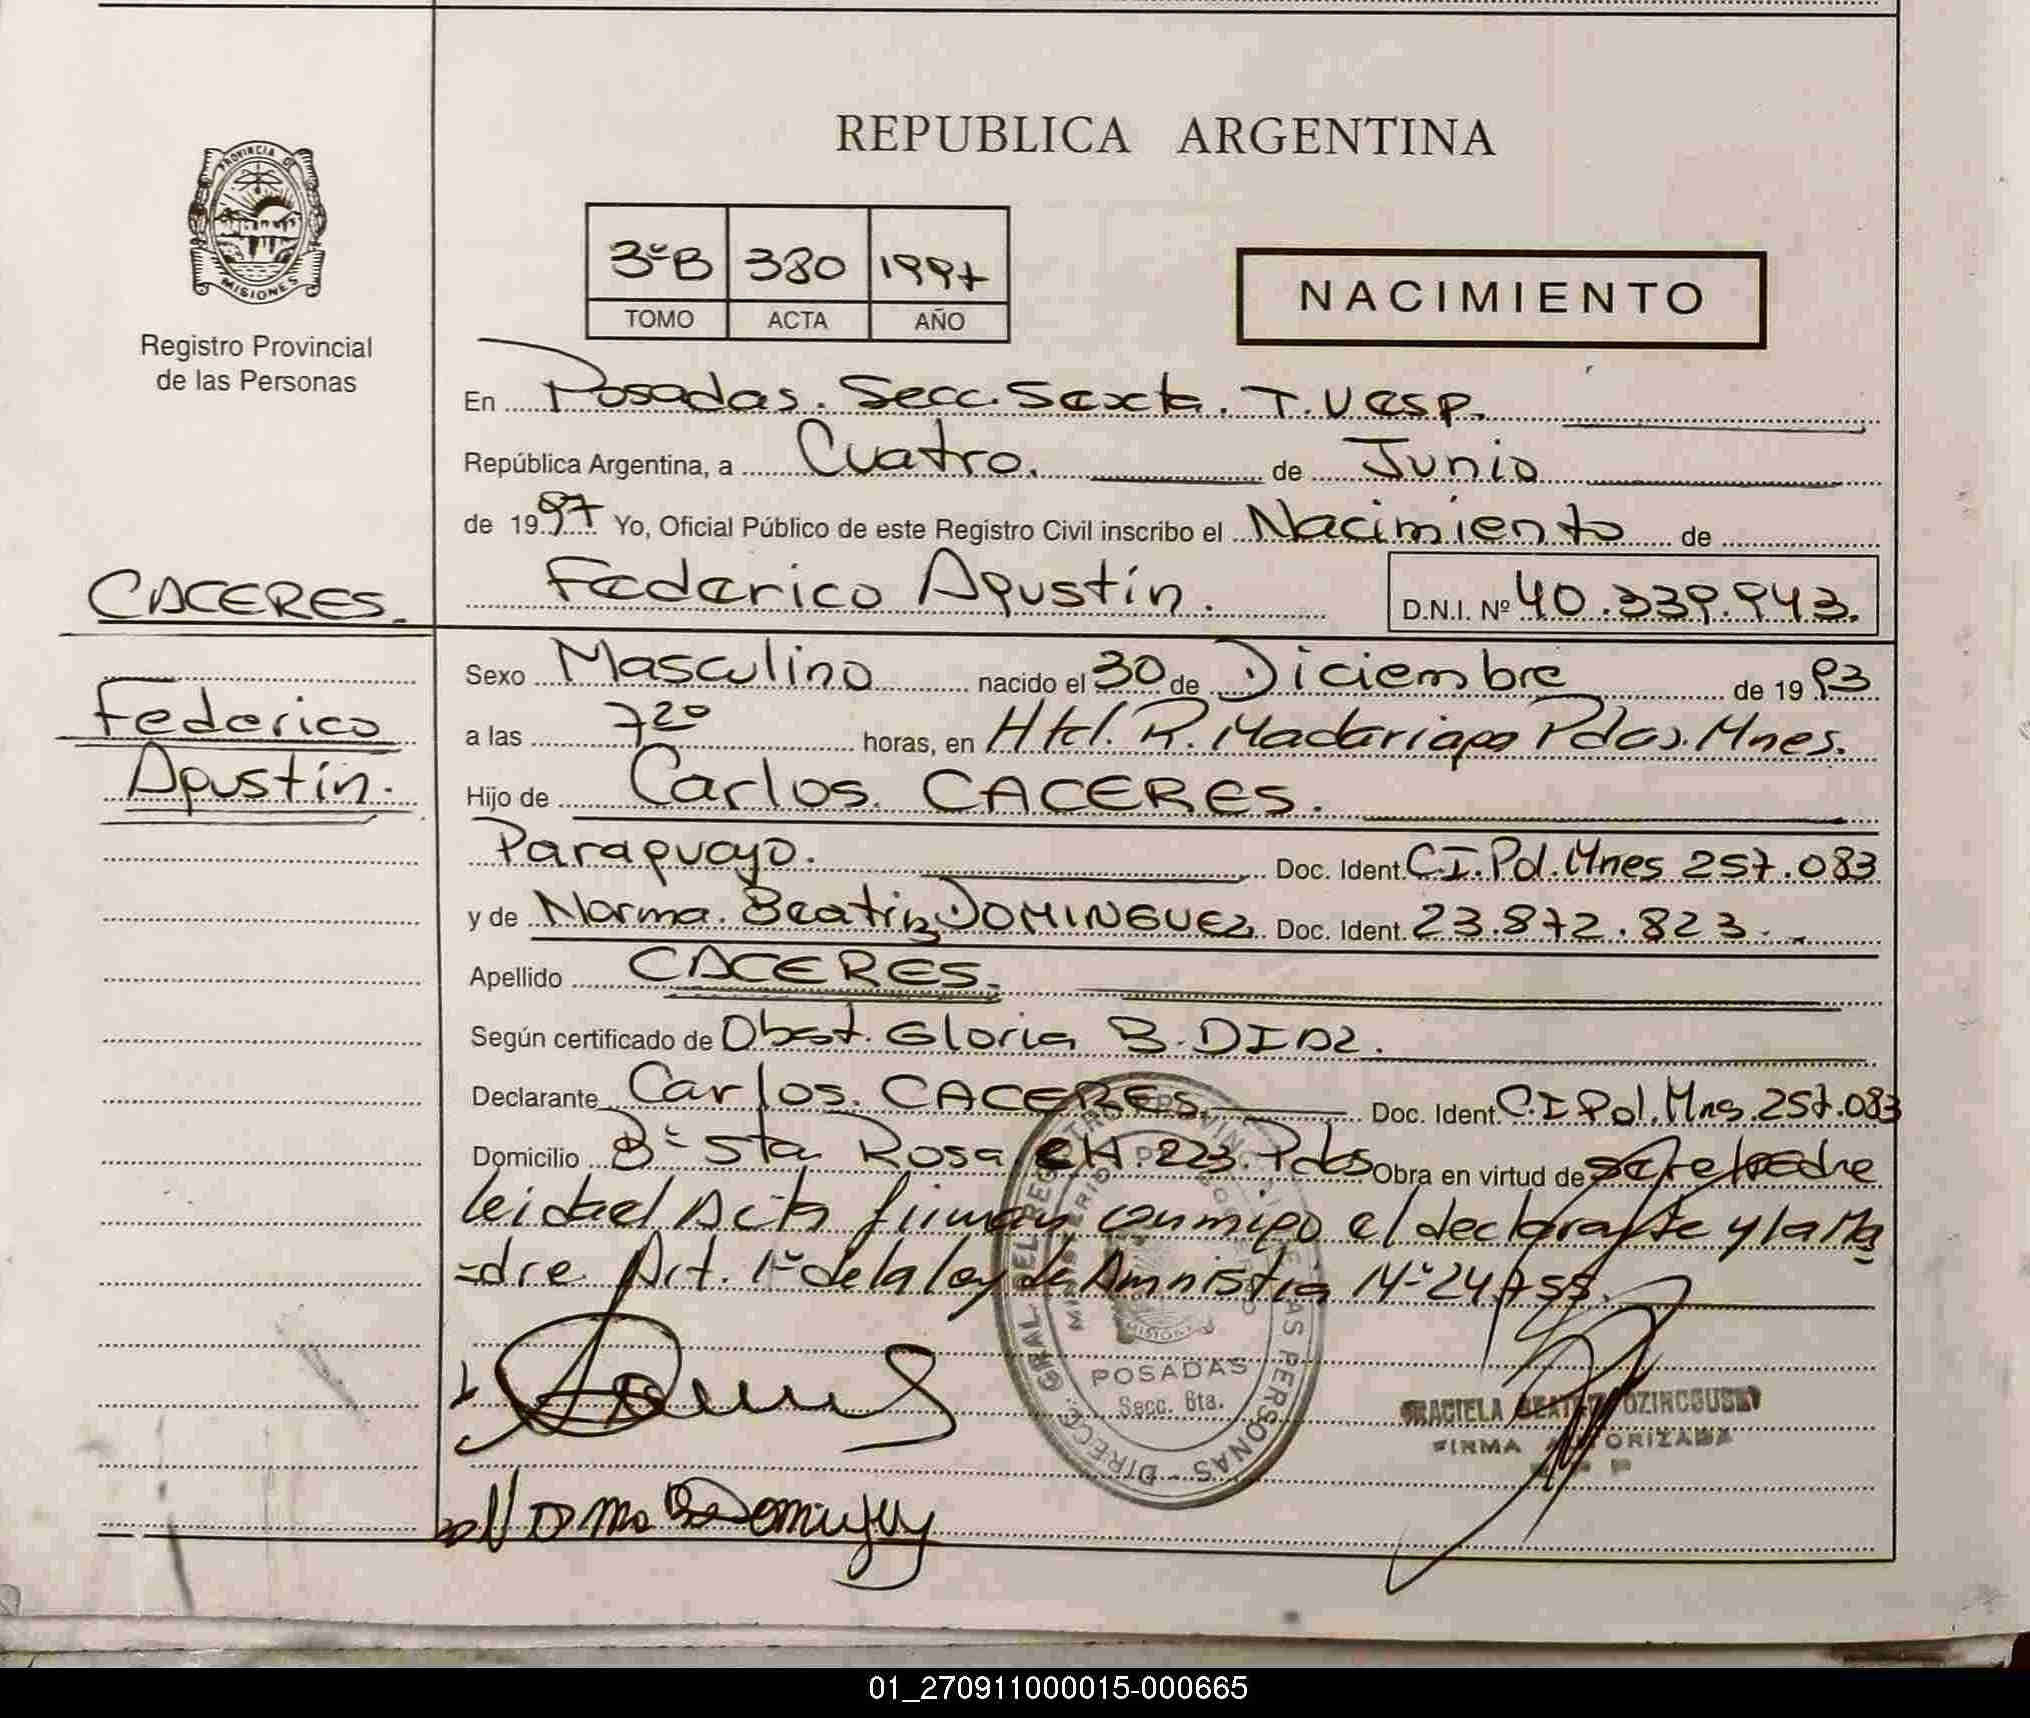 REPUBLICA ARGENTINA
PROVINCIA D
MISIONES
Registro Provincial
de las Personas
3ºB 380 1997
TOMO ACTA AÑO
NACIMIENTO
En Posadas. Secc. Sexta. T. Vesp.
República Argentina, a Cuatro. de Junio
de 1997 Yo, Oficial Público de este Registro Civil inscribo el Nacimiento de
CACERES. Federico Agustín. D.N.I. Nº 40.339.943.
Federico
Agustín.
Sexo Masculino nacido el 30 de Diciembre de 1993
a las 7 20 horas, en Htel. R. Madariaga Pdas. Mnes.
Hijo de Carlos. CACERES.
Paraguayo. Doc. Ident. C.I. Pol. Mnes 257.083
y de Norma. Beatriz DOMINGUEZ Doc. Ident. 23.872.823.
Apellido CACERES.
Según certificado de Obst. Gloria B. DIAZ.
Declarante Carlos. CACERES Doc. Ident. C.I Pol. Mns. 257.083
Domicilio Bº Sta Rosa CH. 223. Pdas Obra en virtud de ser el Padre
leida el Acta firman conmigo el declarante y la Ma
=dre Art. 1º de la ley de Amnistia Nº 24.755.
DIRECC. GRAL. DEL REGISTRO PROVINCIAL DE LAS PERSONAS
MINISTERIO DE GOBIERNO
MISIONES
POSADAS
Secc. 6ta.
GRACIELA BEATRIZ
FIRMA AUTORIZADA
Norma B Dominguez
01_270911000015-000665